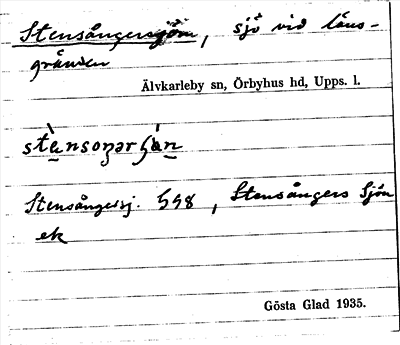 Stensångersjön, sjö vid läns-
gränden
Älvkarleby sn, Örbyhus hd, Upps. l.
Stensångersj. 548, Stensångers Sjön
ek
Gösta Glad 1935.